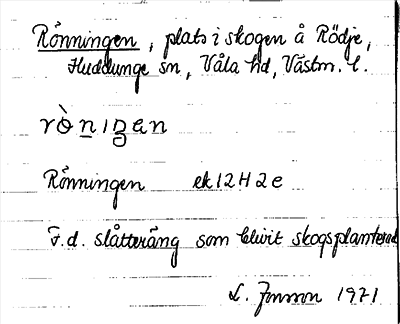 Rönningen, plats i skogen å Rödje,
Huddunge sn, Våla hd, Västm. l.
rònịŋen
Rönningen ek 12H2e
F.d. slåtteräng som blivit skogsplanterad
L. Jonsson 1971